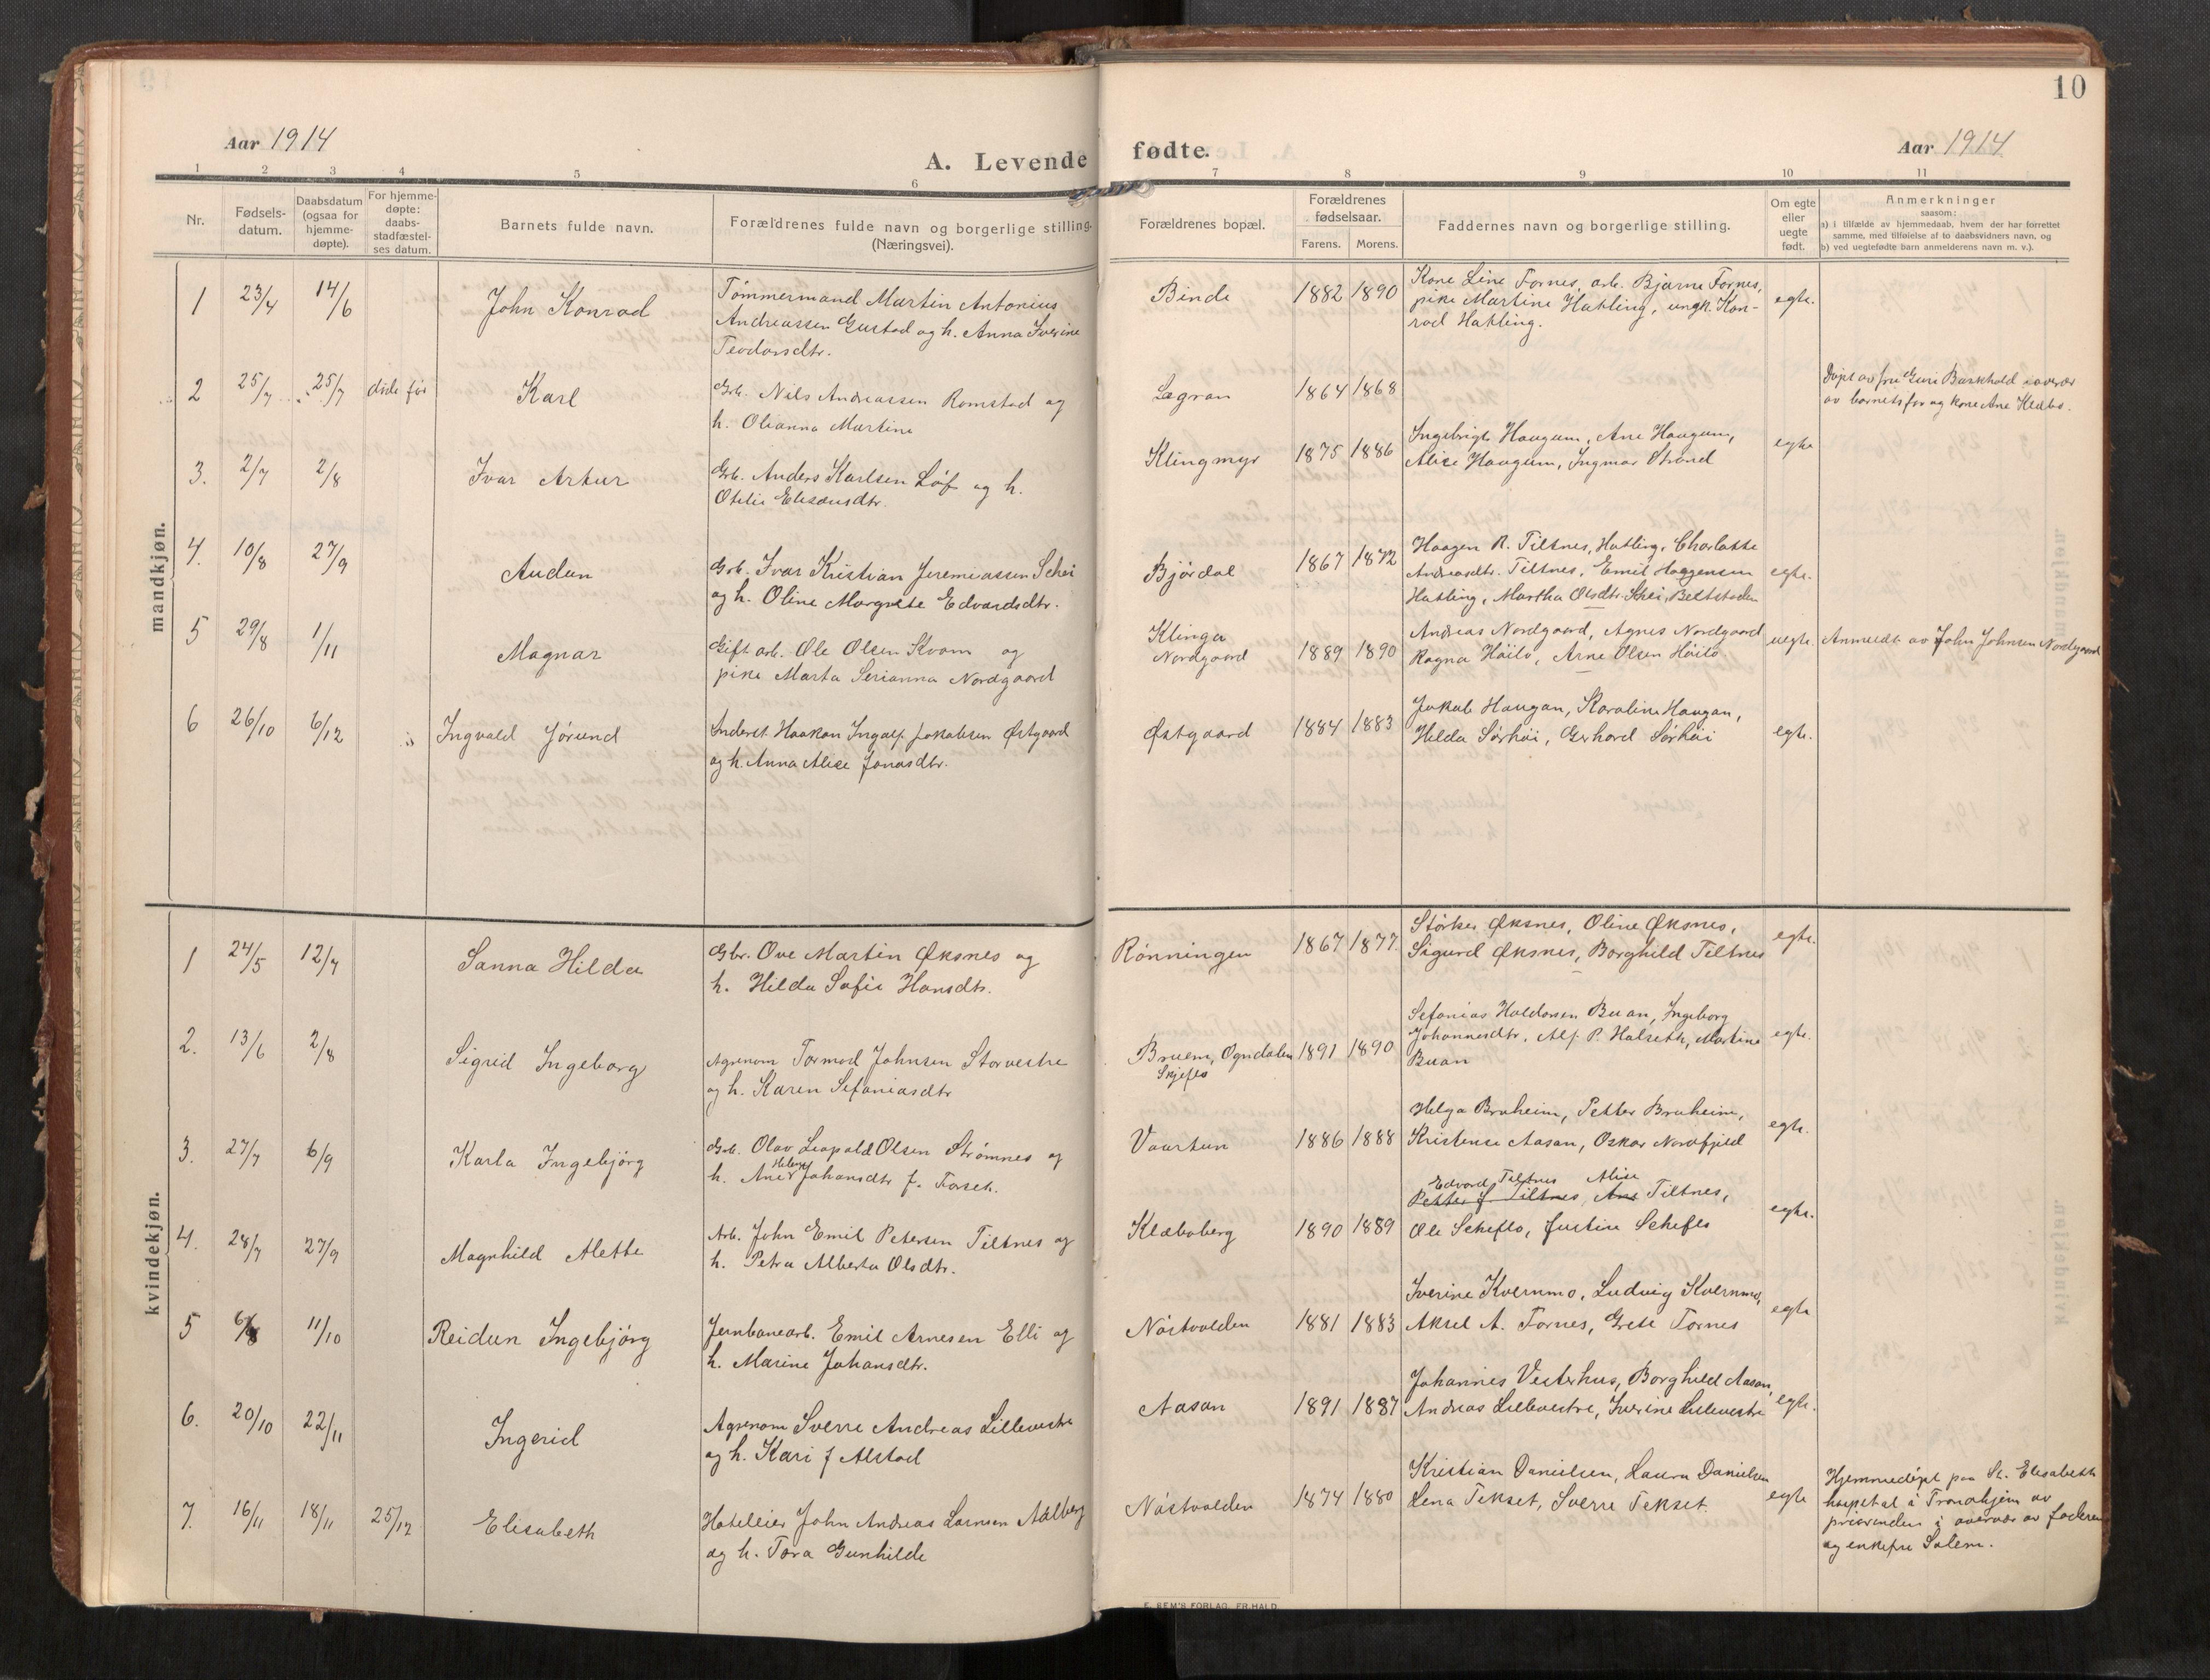 10
Aar 1914
A. Levende
fødte.
Aar 1914
1 2 3 4 5 6 7 8 9 10 11
Nr.
Fødsels-
datum.
Daabsdatum
(ogsaa for
hjemme-
døpte).
For hjemme-
døpte:
daabs-
stadfæstel-
ses datum.
Barnets fulde navn.
Forældrenes fulde navn og borgerlige stilling.
(Næringsvei).
Forældrenes bopæl.
Forældrenes
fødselsaar.
Farens. Morens.
Faddernes navn og borgerlige stilling.
Om egte
eller
uegte
født.
Anmerkninger
saasom:
a) i tilfælde av hjemmedaab, hvem der har forrettet
samme, med tilføielse af to daabsvidners navn, og
b) ved uegtefødte barn anmelderens navn m. v.).
mandkjøn.
1 23/4 14/6 John Konrad
Tømmermand Martin Antonius
Andreassen Gustad og h. Anna Iverine
Teodorsdtr.
Binde 1882 1890
Kone Line Fornes, arb. Bjarne Fornes,
pike Martine Hatling, ungk. Kon-
rad Hatling.
egte.
2 25/7 25/7 døde før Karl
Grb. Nils Andreassen Romstad og
h. Olianna Martine
Lægran 1864 1868
Døpt av fru Guri Buskhold i overvær
av barnets far og kone Ane Klæbo.
3. 2/7 2/8 Ivar Artur
Grb. Anders Karlsen Løf og h.
Otelie Elisæusdtr.
Klingmyr 1875 1886
Ingebrigt Haugum, Ane Haugum,
Alise Haugum, Ingmar Strand
egte
4. 10/8 27/9 Audun
Grb. Ivar Kristian Jeremiassen Schei
og h. Oline Margrete Edvardsdtr.
Bjørdal 1867 1872
Haagen R. Tiltnes, Hatling, Charlotte
Andreasdtr. Tiltnes, Emil Haagensen
Hatling, Martha Olsdtr. Skei, Beitstaden
egte.
5 29/8 1/11 Magnar
Gift arb. Ole Olsen Kvam og
pike Marta Serianna Nordgaard
Klinga
Nordgaard 1889 1890
Andreas Nordgaard, Agnes Nordgaard
Ragna Høilo, Arne Olsen Høilo
uegte. Anmeldt av John Johnsen Nordgaard
6 26/10 6/12 Ingvald Jørund
Inderst Haakon Ingolf Jakobsen Østgaard
og h. Anna Alise Jonasdtr.
Østgaard 1884 1883
Jakob Haugan, Karoline Haugan,
Hilda Sørhøi, Gerhard Sørhøi
egte.
kvindekjøn.
1 24/5 12/7 Sanna Hilda
Gbr. Ove Martin Øksnes og
h. Hilda Sofie Hansdtr.
Rønningen 1867 1877.
Størker Øksnes, Oline Øksnes,
Sigurd Øksnes, Borghild Tiltnes
egte.
2. 13/6 2/8 Sigrid Ingeborg
Agronom Tormod Johnsen Storvestre
og h. Karen Sefaniasdtr
Bruem, Ogndalen
Skjeflo
1891 1890
Sefanias Haldorsen Buan, Ingeborg
Johannesdtr. Alf P. Halseth, Martine
Buan
egte.
3. 27/7 6/9 Karla Ingebjørg
Grb. Olav Leopold Olsen Strømnes og
h. Ane Helene Johansdtr f. Forset.
Vaartun 1886 1888
Helga Bruheim, Petter Bruheim,
Kristense Aasan, Oskar Nordfjeld
egte.
4. 28/7 27/9 Magnhild Alette
Arb. John Emil Petersen Tiltnes og
h. Petra Alberta Olsdtr.
Klæboberg 1890 1889
Edvard Tiltnes Alise
Petter J Tiltnes Ane Tiltnes,
Ole Scheflo, Justine Scheflo
egte.
5 6/8 11/10 Reidun Ingebjørg
Jernbanearb. Emil Arnesen Elli og
h. Marine Johansdtr.
Nøstvolden 1881 1883
Iverine Kvernmo, Ludvig Kvernmo,
Aksel A. Fornes, Grete Fornes
egte
6. 20/10 22/11 Ingerid
Agronom Sverre Andreas Lillevestre
og h. Kari f Alstad
Aasan 1891 1887
Johannes Vesterhus, Borghild Aasan,
Andreas Lillevestre, Iverine Lillevestre
egte.
7. 16/11 18/11 25/12 Elisabeth
Hoteleier John Andreas Larnsen Aalberg
og h. Tora Gunhilde
Nøstvolden 1874 1880
Kristian Danielsen, Laura Danielsen
Lena Tekset, Sverre Tekset.
egte
Hjemmedøpt paa St. Elisabeth
hospital i Trondhjem av
priorinden i overvær av faderen
og enkefru Solem.
E. SEM'S FORLAG, FR.HALD